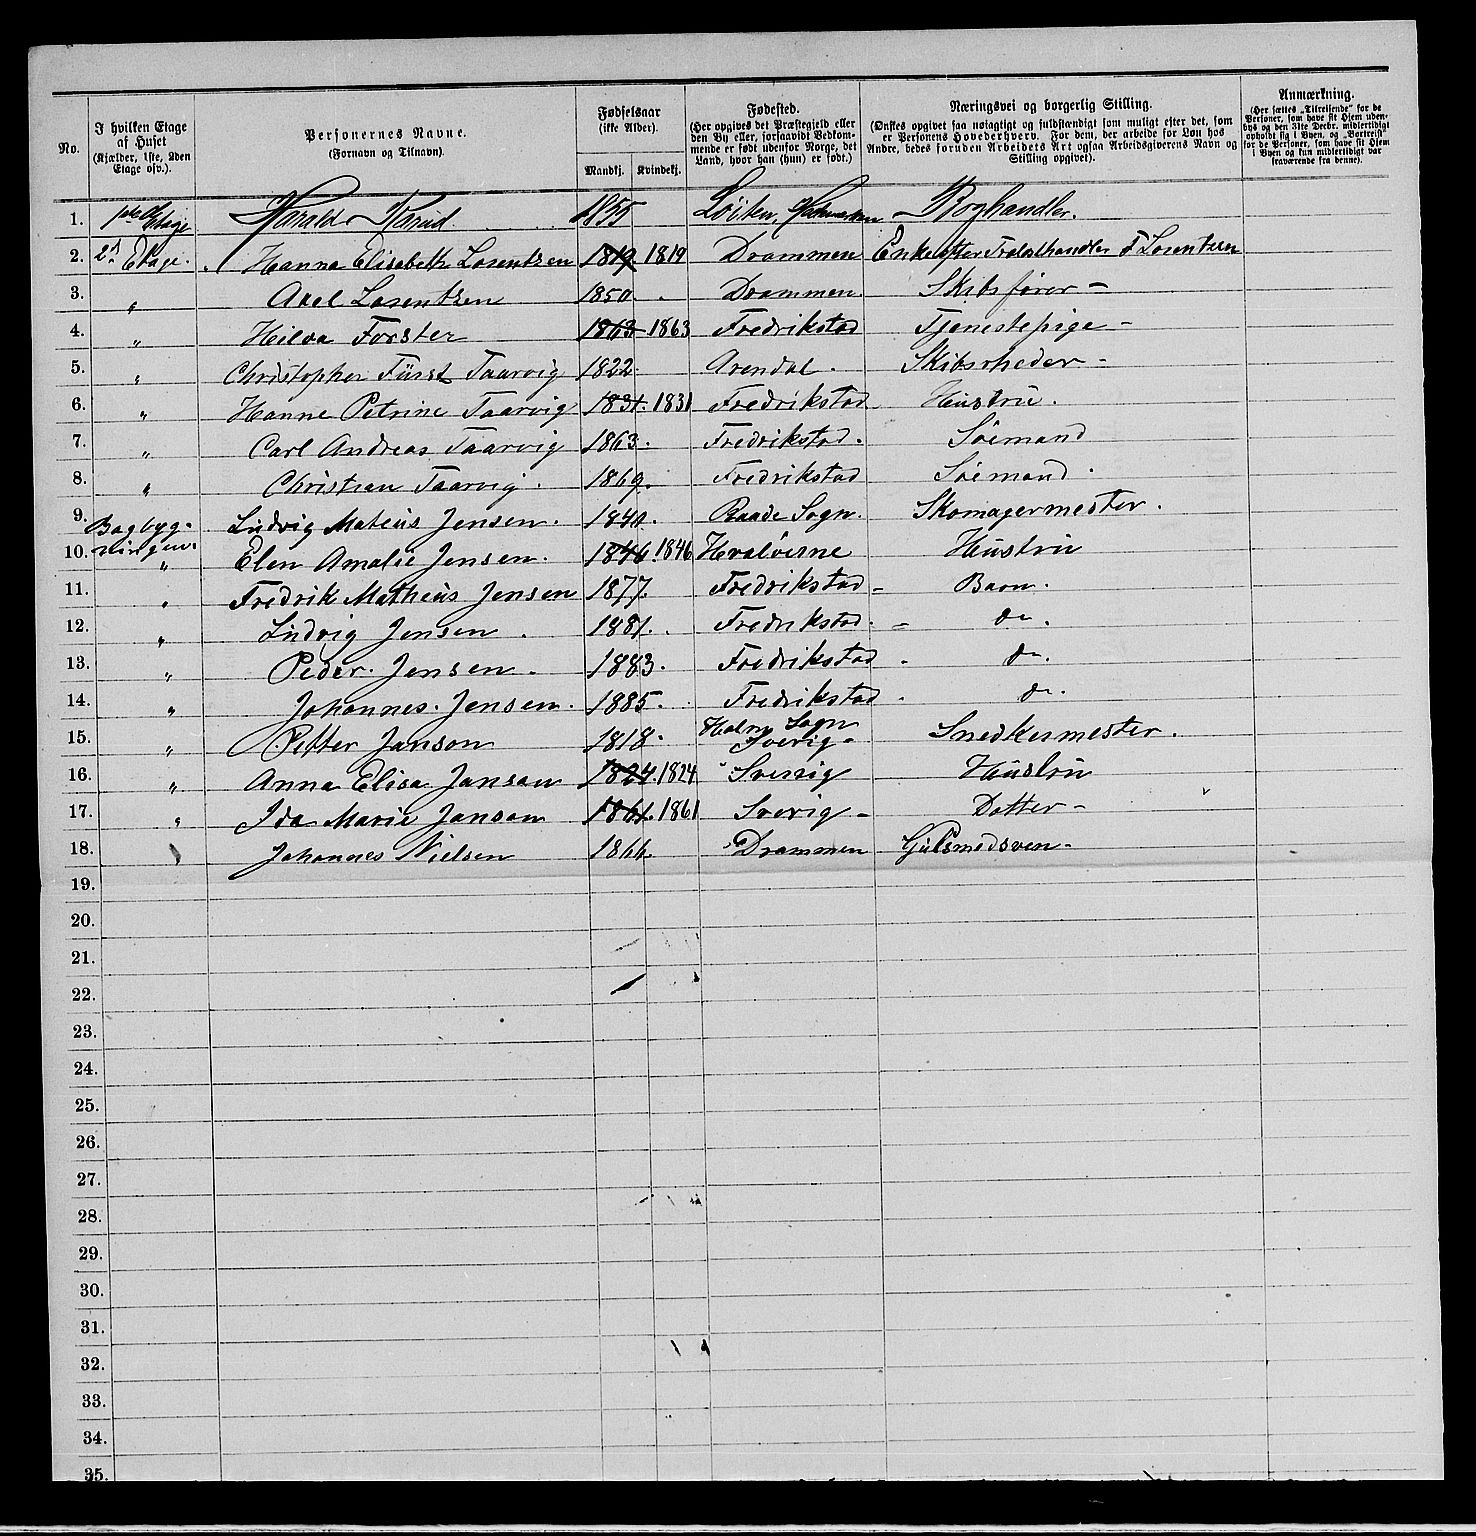 No.
I hvilken Etage af Huset (Kjælder, 1ste, 2den Etage osv.).
Personernes Navne. (Fornavn og Tilnavn).
Fødselsaar (ikke Alder). Mandkj. Kvindekj.
Fødested. (Her opgives det Præstegjeld eller den By eller, forsaavidt Vedkommende er født udenfor Norge, det Land, hvor han (hun) er født.)
Næringsvei og borgerlig Stilling. (Ønskes opgivet saa nøiagtigt og fuldstændigt som muligt efter det, som er Personens Hovederhverv. For dem, der arbeide for Løn hos Andre, bedes foruden Arbeidets Art ogsaa Arbeidsgiverens Navn og Stilling opgivet).
Anmærkning. (Her sættes „Tilreisende" for de Personer, som have sit Hjem udenbys og den 31te Decbr. midlertidigt opholdt sig i Byen, og „Bortreist" for de Personer, som have sit Hjem i Byen og kun midlertidigt var fraværende fra denne).
1. Etage Harald 1855 Løiten, Boghandler.
2. 2d Etage. Hanna Elisabeth Lorentzen 1819. 1819 Drammen Enke efter F Lorentzen
3. „ Axel Lorentzen 1850. Drammen. Skibsfører –
4. „ Forster 1863 1863 Fredrikstad Tjenestepige –
5. „ Christopher Fürst Taarvig 1822. Arendal. Skibsrheder –
6. „ Hanne Petrine Taarvig 1831. 1831 Fredrikstad Hustru.
7. „ Carl Andreas Taarvig 1863. Fredrikstad. Søemand
8. „ Christian Taarvig. 1869. Fredrikstad Søemand.
9. Bagbyg- Ludvig Mateus Jensen. 1840. Raade Sogn. Skomagermester.
10. ningen. „ Elen Amalie Jensen. 1846. 1846 Hvaløerne Hustru
11. „ Fredrik Matheus Jensen 1877. Fredrikstad – Barn.
12. „ Ludvig Jensen. 1881. Fredrikstad. – do.
13. „ Peder. Jensen. 1883. Fredrikstad. do.
14. „ Johannes. Jensen. 1885. Fredrikstad. do.
15. „ Petter Janson 1818. Sogn Sverig- Snedkermester.
16. „ Anna Elisa Janson 1824. 1824 Sverrig Hustru
17. „ Ida Marie Janson 1861. 1861 Sverig – Dotter –
18. Johannes Nielsen 1866. Drammen Gulsmedsven-
19.
20.
21.
22.
23.
24.
25.
26.
27.
28.
29.
30.
31.
32.
33.
34.
35.